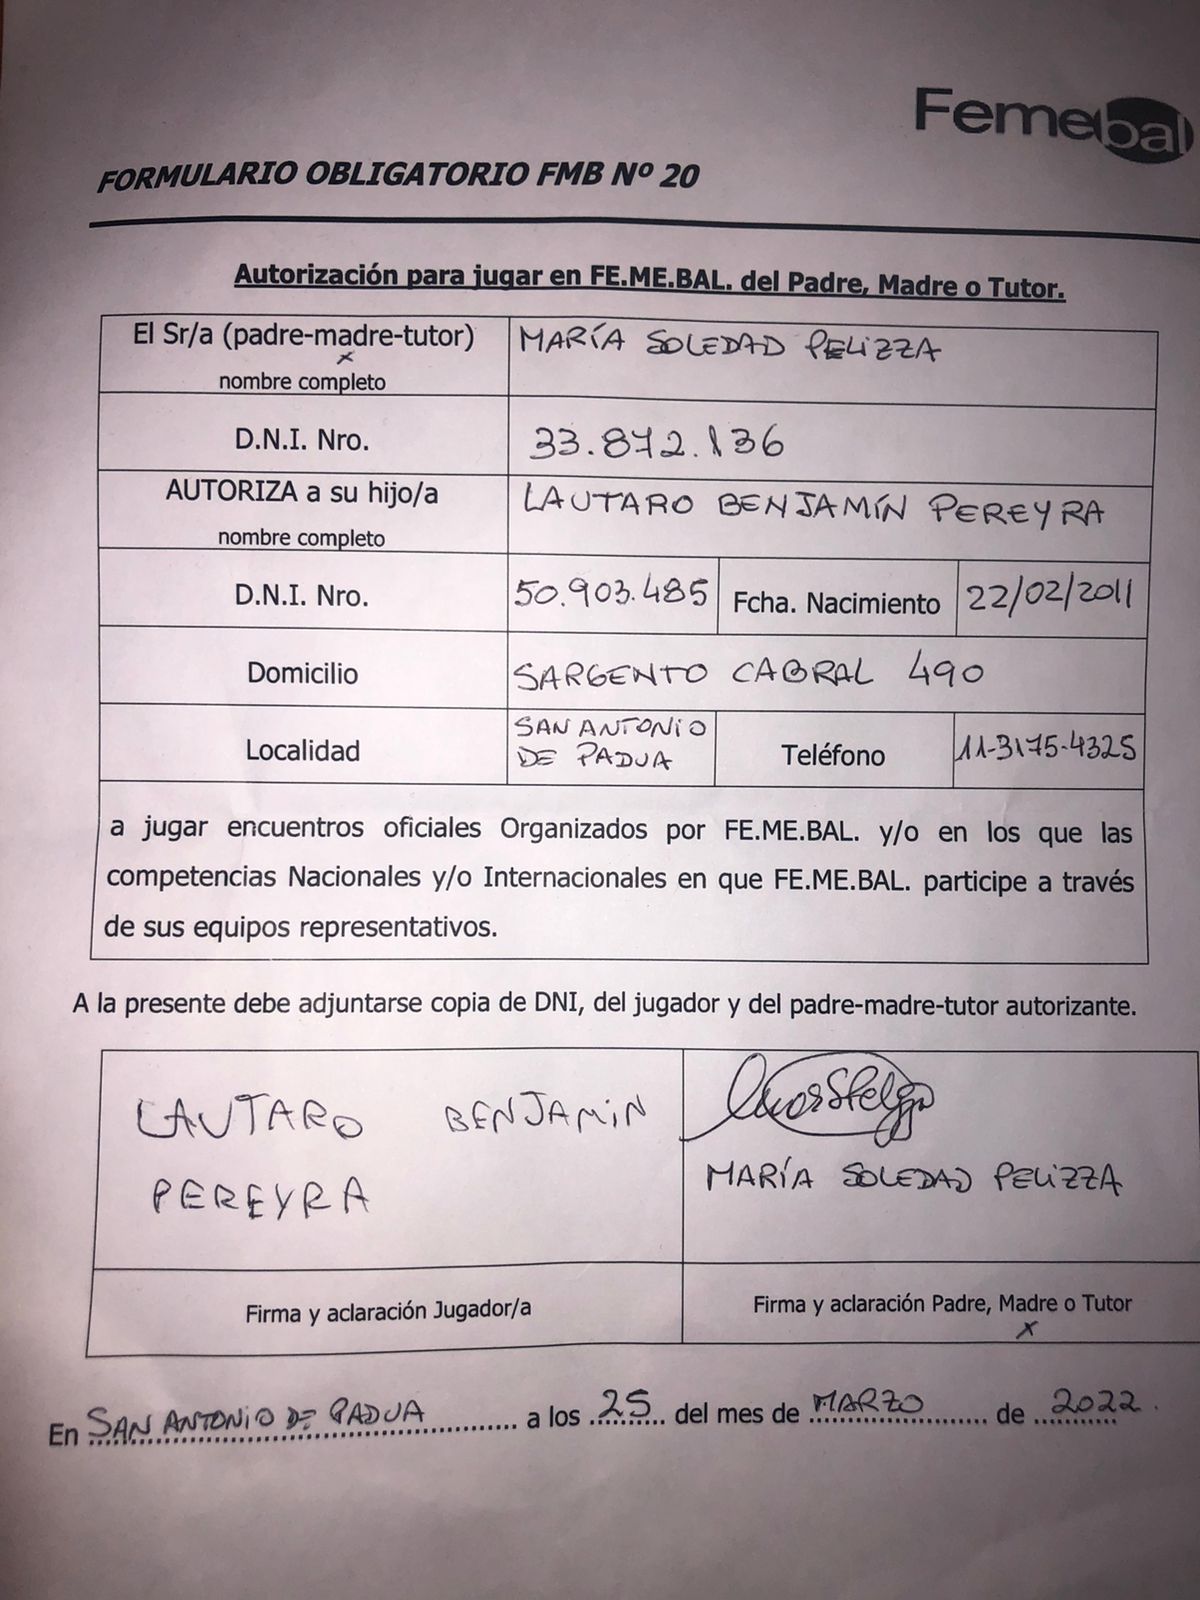 Femebal
FORMULARIO OBLIGATORIO FMB Nº 20
Autorización para jugar en FE.ME.BAL. del Padre, Madre o Tutor.
El Sr/a (padre-madre-tutor) MARÍA SOLEDAD PELIZZA
x
nombre completo
D.N.I. Nro. 33.872.136
AUTORIZA a su hijo/a LAUTARO BENJAMÍN PEREYRA
nombre completo
D.N.I. Nro. 50.903.485 Fcha. Nacimiento 22/02/2011
Domicilio SARGENTO CABRAL 490
SAN ANTONIO
Localidad DE PADUA Teléfono 11-3175-4325
a jugar encuentros oficiales Organizados por FE.ME.BAL. y/o en los que las
competencias Nacionales y/o Internacionales en que FE.ME.BAL. participe a través
de sus equipos representativos.
A la presente debe adjuntarse copia de DNI, del jugador y del padre-madre-tutor autorizante.
LAUTARO BENJAMIN
PEREYRA
MARÍA SOLEDAD PELIZZA
Firma y aclaración Jugador/a
Firma y aclaración Padre, Madre o Tutor
x
En SAN ANTONIO DE PADUA a los 25 del mes de MARZO de 2022.